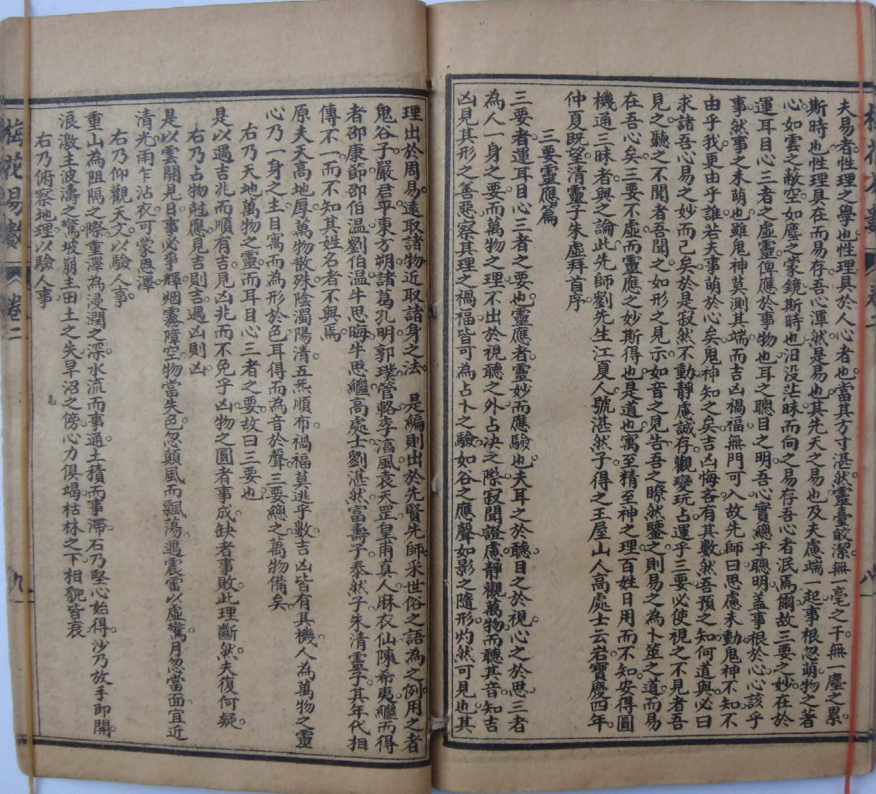 夫易者性理之學也性理具於人心者也當其方寸湛然靈臺皎潔無一毫之干無一塵之累
斯時也性理具在而易存吾心渾然是易也其先天之易也及夫慮端一起事根忽萌物之著
心如雲之蔽空如塵之蒙鏡斯時也汩没茫昧而向之易存吾心者泯焉爾故三要之妙在於
運耳目心三者之虛靈俾應於事物也耳之聰目之明吾心實總乎聰明盖事根於心心該乎
事然事之未萌也雖鬼神莫測其端而吉凶禍福無門可入故先師曰思慮未動鬼神不知不
由乎我更由乎誰若夫事萌於心矣鬼神知之矣吉凶悔吝有其數然吾預之知何道與必曰
求諸吾心易之妙而已矣於是寂然不動靜慮誠存觀變玩占運乎三要必使視之不見者吾
見之聽之不聞者吾聞之如形之見示如音之見告吾之瞭然鑒之則易之為卜筮之道而易
在吾心矣三要不虛而靈應之妙斯得也是道也寓至精至神之理百姓日用而不知安得圓
機通三昧者與之論此先師劉先生江夏人號湛然子得之王屋山人高處士云岩寶慶四年
仲夏既望清靈子朱虛拜首序
三要靈應篇
三要者運耳目心三者之要也靈應者靈妙而應驗也夫耳之於聽目之於視心之於思三者
為人一身之要而萬物之理不出於視聽之外占决之際寂聞證慮靜觀萬物而聽其音知吉
凶見其形之善惡察其理之禍福皆可為占卜之驗如谷之應聲如影之隨形灼然可見也其
理出於周易遠取諸物近取諸身之法 是編則出於先賢先師采世俗之語為之例用之者
鬼谷子嚴君平東方朔諸葛孔明郭璞管輅李淳風袁天罡皇甫真人麻衣仙陳希夷繼而得
者邵康節邵伯温劉伯温牛思晦牛思繼高處士劉湛然富壽子泰然子朱清靈子其年代相
傳不一而不知其姓名者不與焉
原夫天高地厚萬物散殊陰濁陽清五炁順布禍福莫逃乎數吉凶皆有其機人為萬物之靈
心乃一身之主目寓而為形於色耳得而為音於聲三要總之萬物備矣
右乃天地萬物之靈而耳目心三者之要故曰三要也
是以遇吉兆而順有吉見凶兆而不免乎凶物之圓者事成缺者事敗此理斷然夫復何疑
右乃占物尅應見吉則吉遇凶則凶
是以雲開見日事必乎輝烟霧障空物當失色忽顛風而飄蕩遇震雷以虛驚月忽當面宜近
清光雨乍沾衣可蒙恩澤
右乃仰觀天文以驗人事
重山為阻隔之際重澤為浸潤之深水流而事通土積而事滯石乃堅心始得沙乃放手即開
浪激主波濤之驚坡崩主田土之失旱沼之傍心力俱竭枯林之下相貌皆衰
右乃俯察地理以驗人事
梅花易數
卷二
九